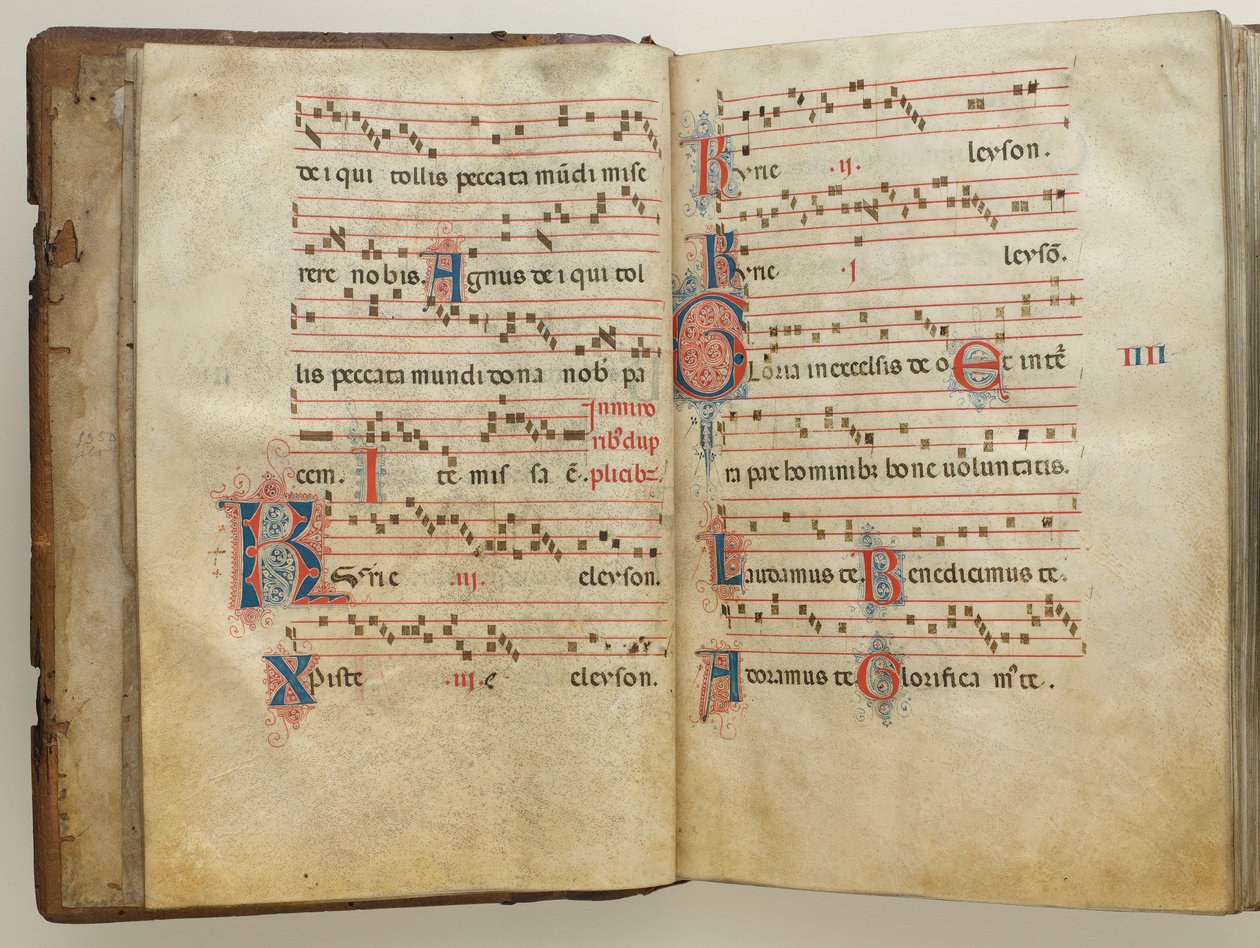 de i qui tollis peccata mūdi mise
rere nobis. Agnus de i qui tol
lis peccata mundi dona nob' pa
In mino
rib' dup
plicibꝫ.
cem. Ite mis sa ē.
Kyrie .iij. eleyson.
Xpiste .iij. e eleyson.
Kyrie .ij. leyson.
Kyrie .i leysō.
Gloria in excelsis de o Et in tē
IIII
ra pax hominibꝫ bone uoluntatis.
Laudamus te. Benedicimus te.
Adoramus te. Glorifica mꝰ te.